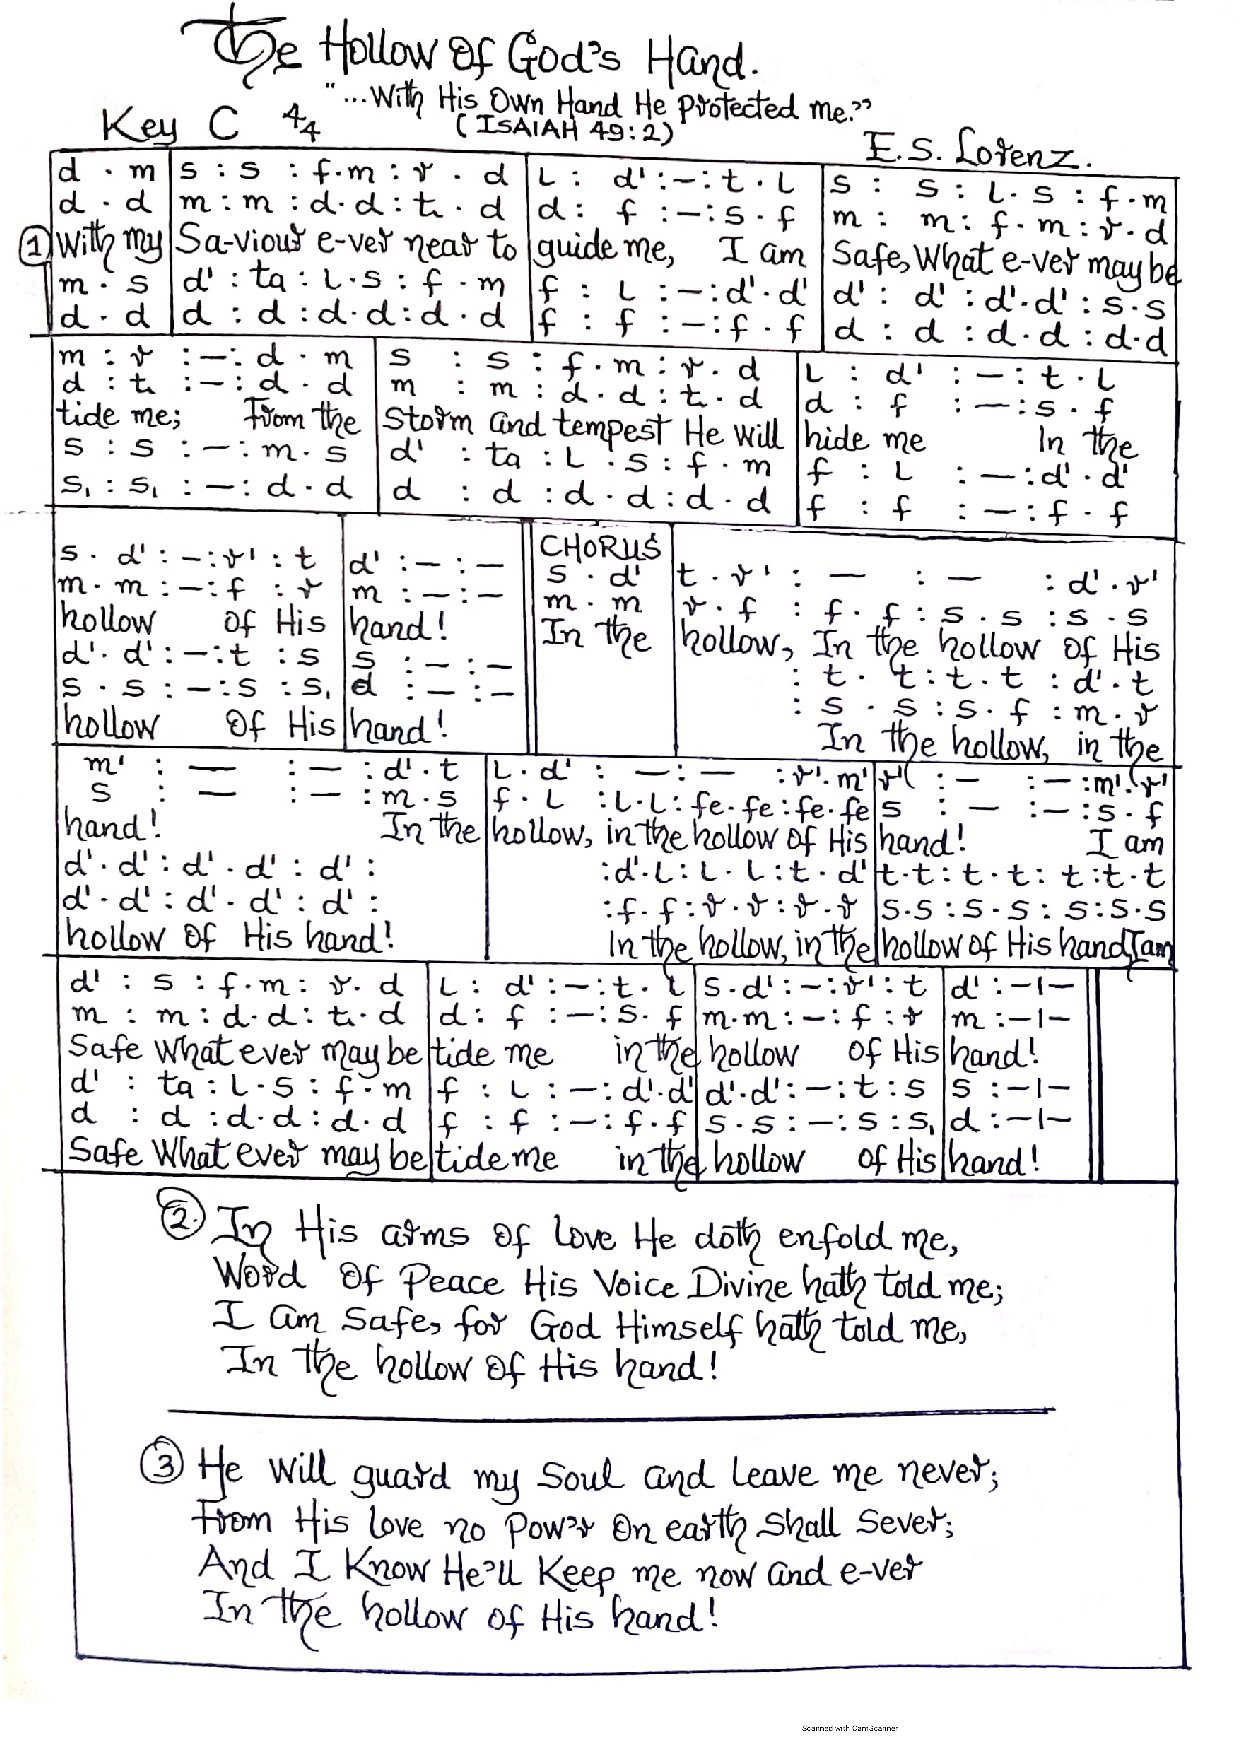 The Hollow Of God's Hand.
"...With His Own Hand He protected me."
Key C 4/4 (ISAIAH 49:2)
E.S. Lorenz.
d . m | s : s : f.m : r . d | L : d' : – : t . L | s : s : L.s : f.m
d . d | m : m : d.d : t₁ . d | d : f : – : s . f | m : m : f.m : r.d
① With my | Sa-viour e-ver near to | guide me, I am | Safe, What e-ver may be
m . s | d' : ta : L.s : f.m | f : L : – : d'.d' | d' : d' : d'.d' : s.s
d . d | d : d : d.d : d.d | f : f : – : f . f | d : d : d.d : d.d
m : r : – : d . m | s : s : f.m : r.d | L : d' : – : t . L
d : t₁ : – : d . d | m : m : d.d : t₁.d | d : f : – : s . f
tide me; From the | Storm and tempest He will | hide me In the
s : s : – : m.s | d' : ta : L.s : f.m | f : L : – : d'.d'
s₁ : s₁ : – : d.d | d : d : d.d : d.d | f : f : – : f . f
CHORUS
s . d' : – : r' : t | d' : – : – | s . d' | t . r' : – : – : d'.r'
m . m : – : f : r | m : – : – | m . m | r . f : f.f : s.s : s.s
hollow of His | hand! | In the | hollow, In the hollow of His
d'.d' : – : t : s | s : – : – | : t.t : t.t : d'.t
s . s : – : s : s₁ | d : – : – | : s.s : s.f : m.r
hollow Of His | hand! | In the hollow, in the
m' : – : – : d'.t | L.d' : – : – : r'.m' | r' : – : – : m'.r'
s : – : – : m.s | f.L : L.L : fe.fe : fe.fe | s : – : – : s.f
hand! In the | hollow, in the hollow of His | hand! I am
d'.d' : d'.d' : d' : | : d'.L : L.L : t.d' | t.t : t.t : t : t.t
d'.d' : d'.d' : d' : | : f.f : r.r : r.r | s.s : s.s : s : s.s
hollow Of His hand! | In the hollow, in the | hollow of His hand I am
d' : s : f.m : r.d | L : d' : – : t.L | s.d' : – : r' : t | d' : – | –
m : m : d.d : t₁.d | d : f : – : s.f | m.m : – : f : r | m : – | –
Safe What ever may be | tide me in the | hollow of His | hand!
d' : ta : L.s : f.m | f : L : – : d'.d' | d'.d' : – : t : s | s : – | –
d : d : d.d : d.d | f : f : – : f.f | s.s : – : s : s₁ | d : – | –
Safe What ever may be | tide me in the | hollow of His | hand!
② In His arms of love He doth enfold me,
Word Of Peace His Voice Divine hath told me;
I am Safe, for God Himself hath told me,
In the hollow of His hand!
③ He will guard my Soul and Leave me never;
From His love no Pow'r On earth Shall Sever;
And I Know He'll Keep me now and e-ver
In the hollow of His hand!
Scanned with CamScanner